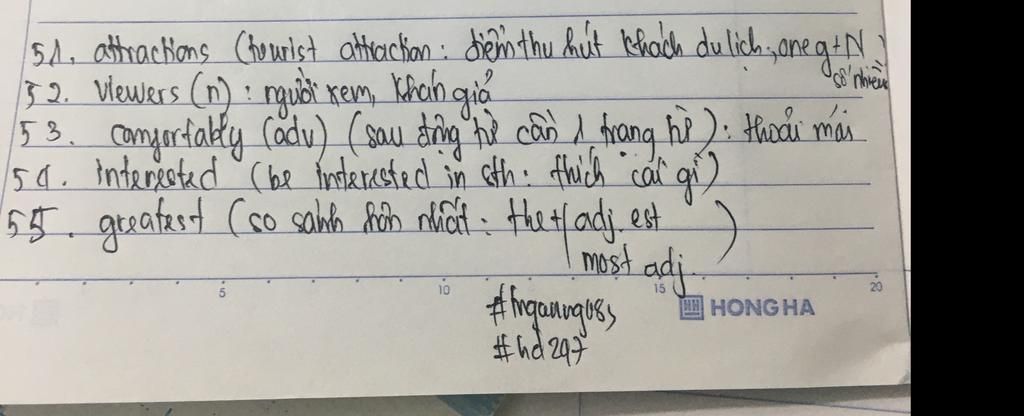 51. attractions (tourist attraction: điểm thu hút khách du lịch; one of + N số nhiều
52. viewers (n): người xem, khán giả
53. comfortably (adv) (sau động từ cần 1 trạng từ): thoải mái
54. interested (be interested in sth: thích cái gì)
55. greatest (so sánh hơn nhất: the + adj. est
most adj.)
5 10 15 20
HONG HA
#hd247